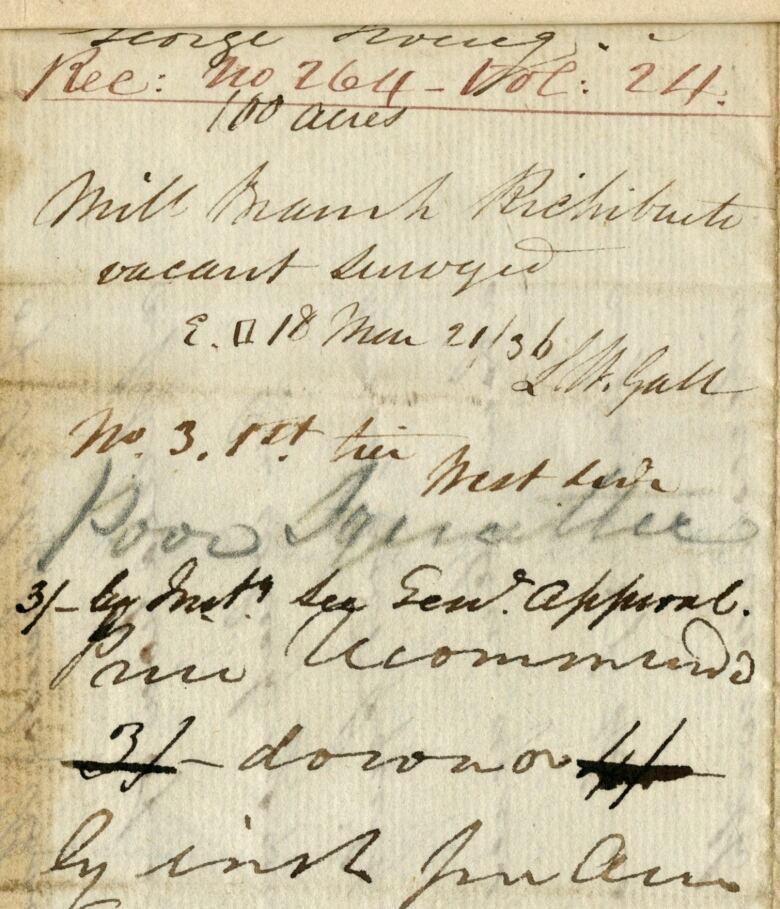 George
Rec: No 264 - Vol: 24.
100 acres
Mill Branch Richibucto
vacant surveyed
E. 18 Mar 21/36
No. 3. 1st. tier
West side
Poor Squatter
3/- by Inst.s See Genl. Approval.
Price Recommend
3/- down or 4/
by inst per Acre